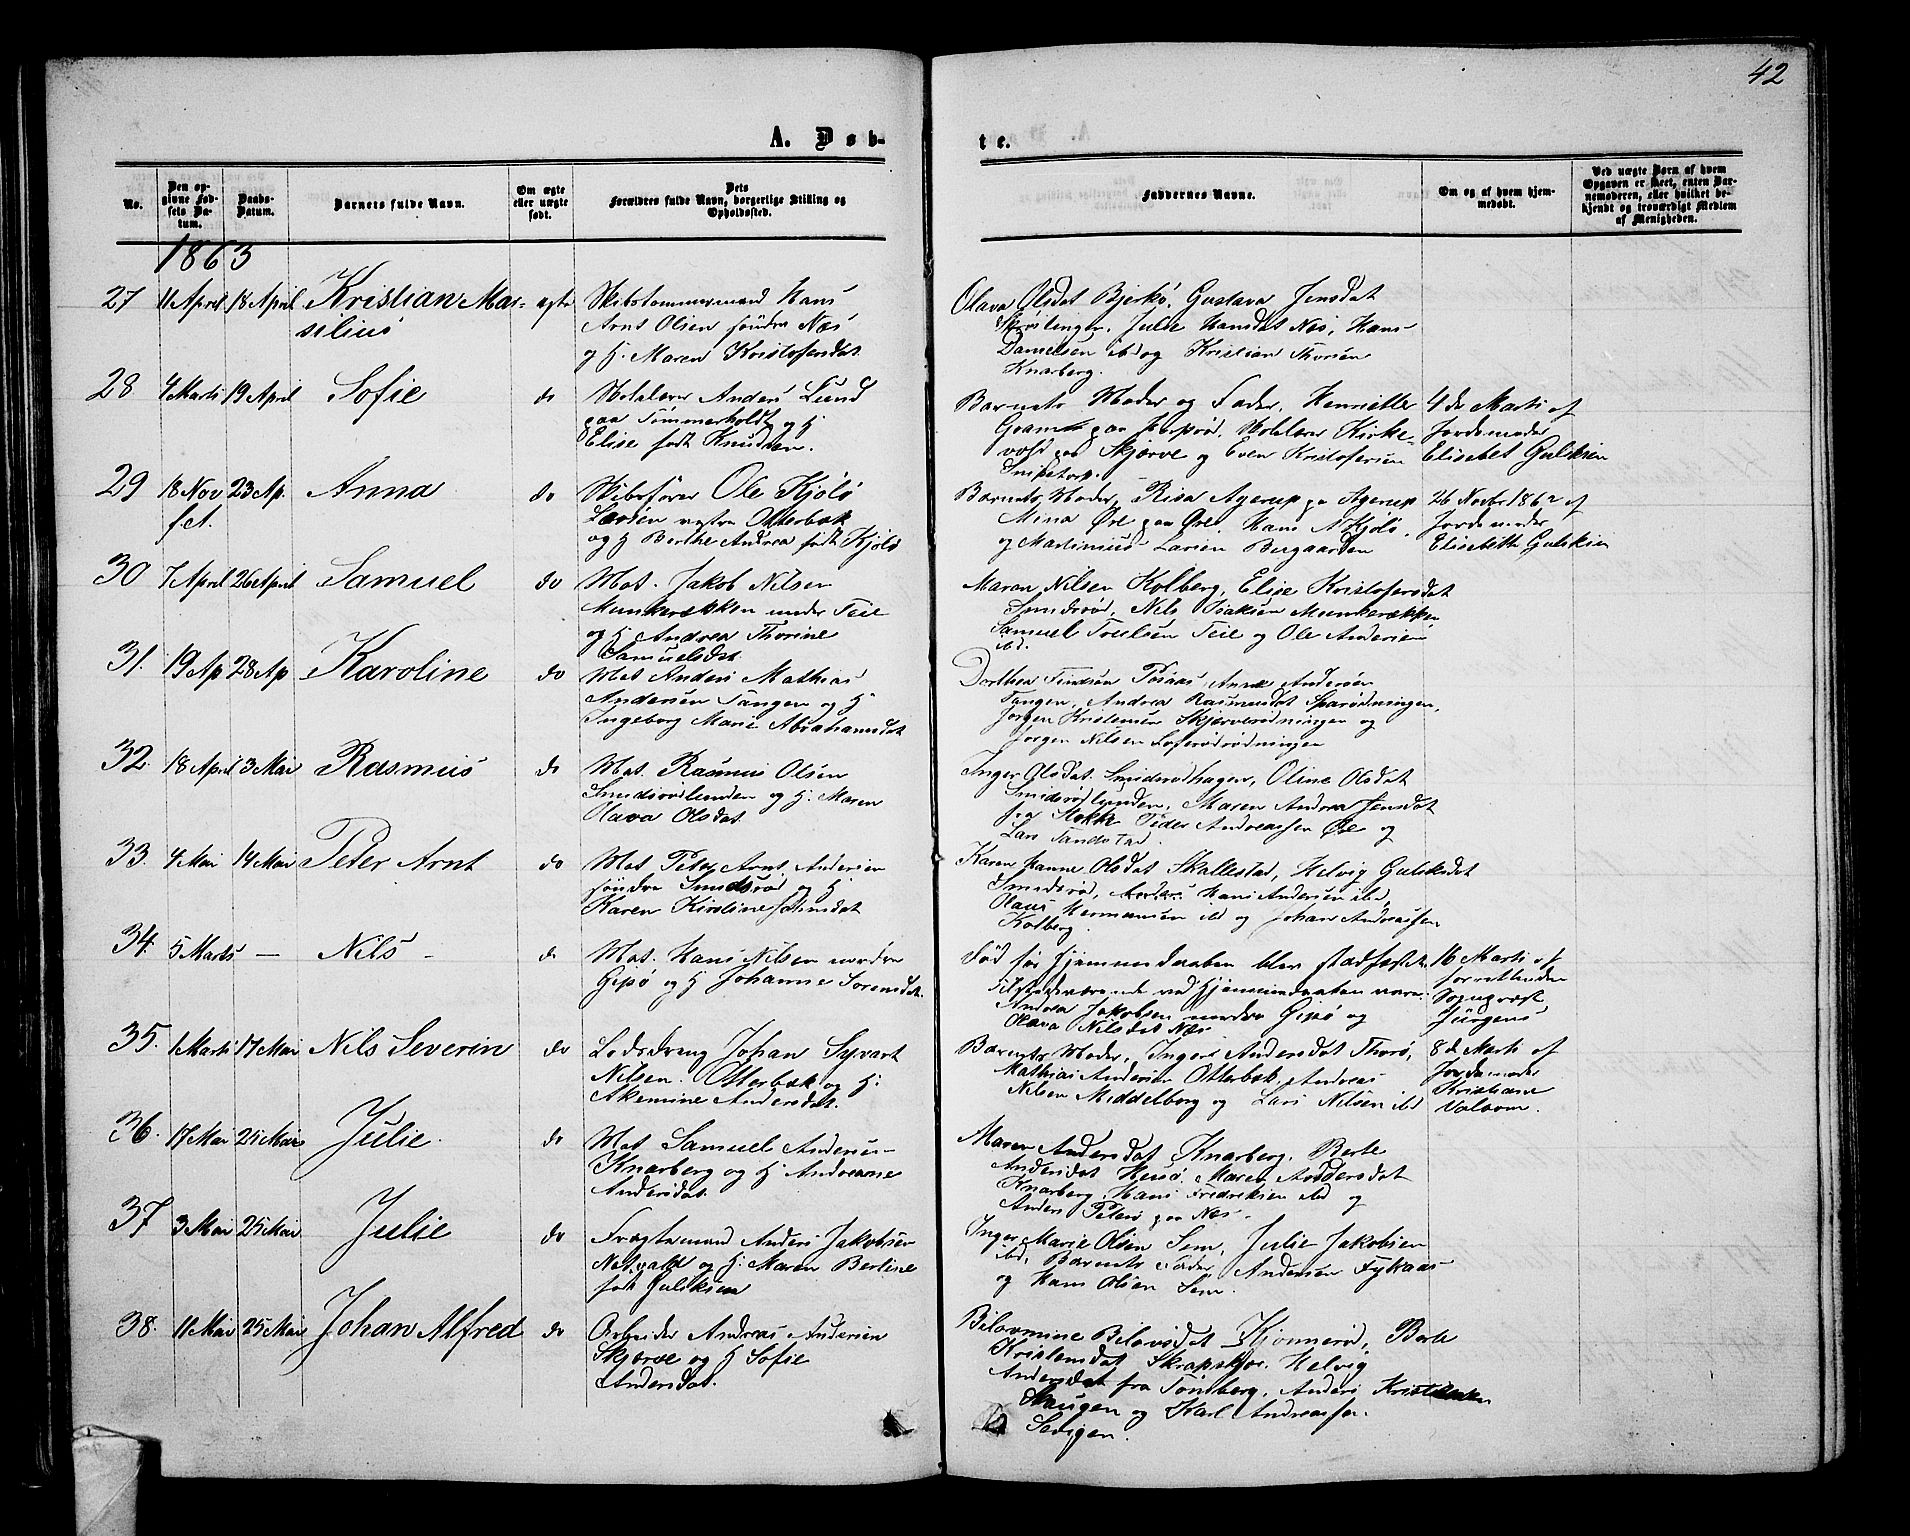 42
A. Døb-
te.
No.
Den op-
givne Fød-
sels Da-
tum.
Daabs-
Datum.
Barnets fulde Navn.
Om ægte
eller uægte
født.
Dets
Forældres fulde Navn, borgerlige Stilling og
Opholdssted.
Faddernes Navne.
Om og af hvem hjem-
medøbt.
Ved uægte Børn af hvem
Opgaven er skeet, enten Bar-
nemoderen, eller hvilket be-
kjendt og troværdigt Medlem
af Menigheden.
1863
27 11 April 18 April Kristian Mar-
silius
ægte
Skibstømmermand Hans
Arnt Olsen søndre Næs
og H. Maren Kristofersdat
Olava Olsdat Bjerkø, Gustava Jensdat
Julie Hansdat Næs, Hans
Danielsen ibd og Kristian Thorsen
Knarberg.
28 4 Marti 19 April Sofie do
Anders Lund
paa Tømmerholdt og H
Elise født Knudsen.
Barnets Moder og Fader, Henriette
Gram paa Kirke-
vold paa Skjerve og Even Kristofersen
Snipetorp.
4 de Marti af
Jordemoder
Elisabet Guliksen
29 18 Nov 23 Ap. Anna do
fct.
Skibsfører Ole Kjølø
Larsen vestre Otterbæk
og H Berthe Andrea født Kjølø
Barnets Moder, Risa Agerup pa Agerup
Mina Øre paa Øre, Hans Kjølø,
og Martinius Larsen Bergaarden
26 Novbr 1862 af
Jordemoder
Elisabeth Guliksen
30 7 April 26 April Samuel do
Mat. Jakob Nilsen
Munkerækken under Teie
og H. Andrea Thorine
Samuelsdat.
Maren Nilsen Kolberg, Elise Kristofersdat
Smidsrød, Nils Isaksen Munkerækken
Samuel Troelsen Teie og Ole Andersen
ibd.
31. 19 Ap 28 Ap Karoline do
Mat Anders Mathias
Andersen Tangen og H
Ingeborg Marie Abrahamsdat
Dorthea Anne Andersen
Tangen, Andrea Rasmusdat Sparødningen,
Jørgen Kristensen Skjerverødningen og
Jørgen Nilsen
32. 18 April 3 Mai Rasmus do
Mat. Rasmus Olsen
Smidsrødlunden og H. Maren
Olava Olsdat.
Inger Olsdat Smidsrødhagen, Oline Olsdat
Smidsrødlunden, Maren Andrea Jensdat
fra Stokke Peder Andreassen Øre og
Lars Tandstad
33. 4 Mai 14 Mai Peter Arnt do
Mat Peter Arnt Andersen
søndre Smidsrød og H
Karen Kirstine
Karen Hanne Olsdat Skallestad, Helvig Guliksdat
Smidsrød, Anders Hans Andersen ibd,
Olaus Hermansen ibd og Johan Andreassen
Kolberg.
34. 5 Marts — Nils — do
Mat. Hans Nilsen nordre
Gipø og H Johanne Sørensdat.
Død før Hjemmedaaben blev stadfæstet.
Tilstedeværende ved Hjemmedaaben vare
Andrea Jakobsen nordre Gipø og
Olava Nilsdat Næs
16 Marti af
forrettende
Sognepræst
Jürgens
35. 1 Marti 17 Mai Nils Severin do
Lodsdreng Johan Syvart
Nilsen Otterbæk og H.
Akemine Andersdat.
Barnets Moder, Inger Andersdat Thorø,
Mathias Andersen Otterbæk, Andreas
Nilsen Middelborg og Lars Nilsen ibd
8 de Marti af
Jordemoder
Kristiane
36. 17 Mai 25 Mai Julie. do
Mat Samuel Andersen
Knarberg og H Andreane
Andersdat.
Maren Andersdat Knarberg, Berte
Andersdat Husø, Maren Andersdat
Knarberg, Hans Fredriksen ibd og
Anders Peters paa Næs.
37 3 Mai 25 Mai Julie do
Fragtemand Anders Jakobsen
og H. Maren Berline
født Guliksen
Inger Marie Olsen Sem, Julie Jakobsen
ibd, Barnets Fader, Andersen
og Hans Olsen Sem.
38. 11 Mai 25 Mai Johan Alfred do
Arbeider Andreas Andersen
Skjærve og H Sofie
Andersdat.
Kjønnerød, Berte
Kristensdat Helvig
Andersdat fra Tønsberg, Anders Kristensen
Haugen og Karl Andreassen.